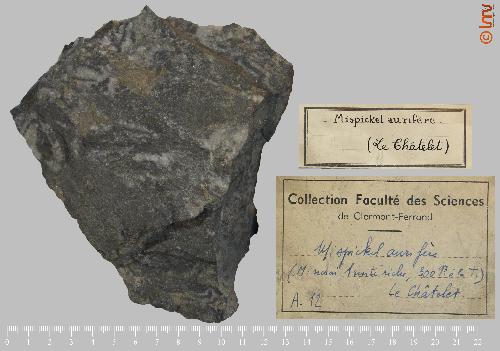 LMV
Mispickel aurifère
(Le Châtelet)
Collection Faculté des Sciences
de Clermont-Ferrand
Mispickel aurifère
Le Châtelet
A. 12
0 1 2 3 4 5 6 7 8 9 10 11 12 13 14 15 16 17 18 19 20 21 22